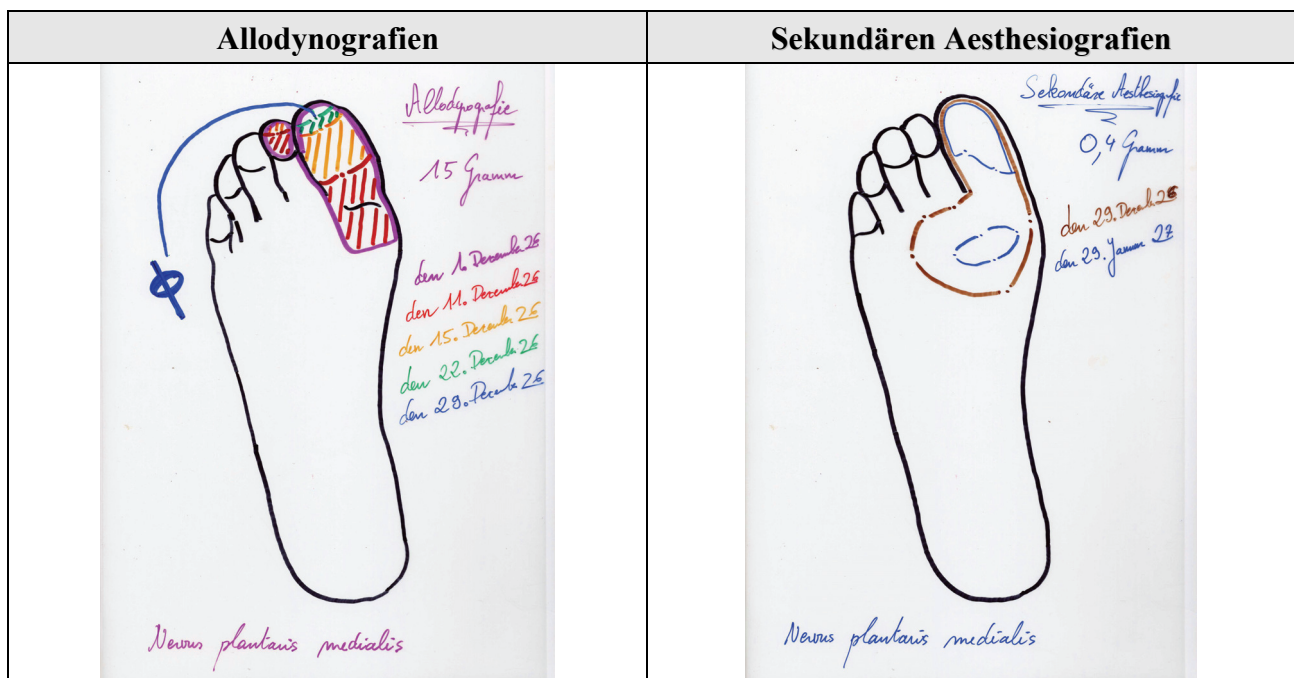 Allodynografien
Sekundären Aesthesiografien
Allodynografie
15 Gramm
den 1. Dezember 26
den 11. Dezember 26
den 15. Dezember 26
den 22. Dezember 26
den 29. Dezember 26
Nervus plantaris medialis
Sekundäre Aesthesiografie
0,4 Gramm
den 29. Dezember 26
den 29. Januar 27
Nervus plantaris medialis